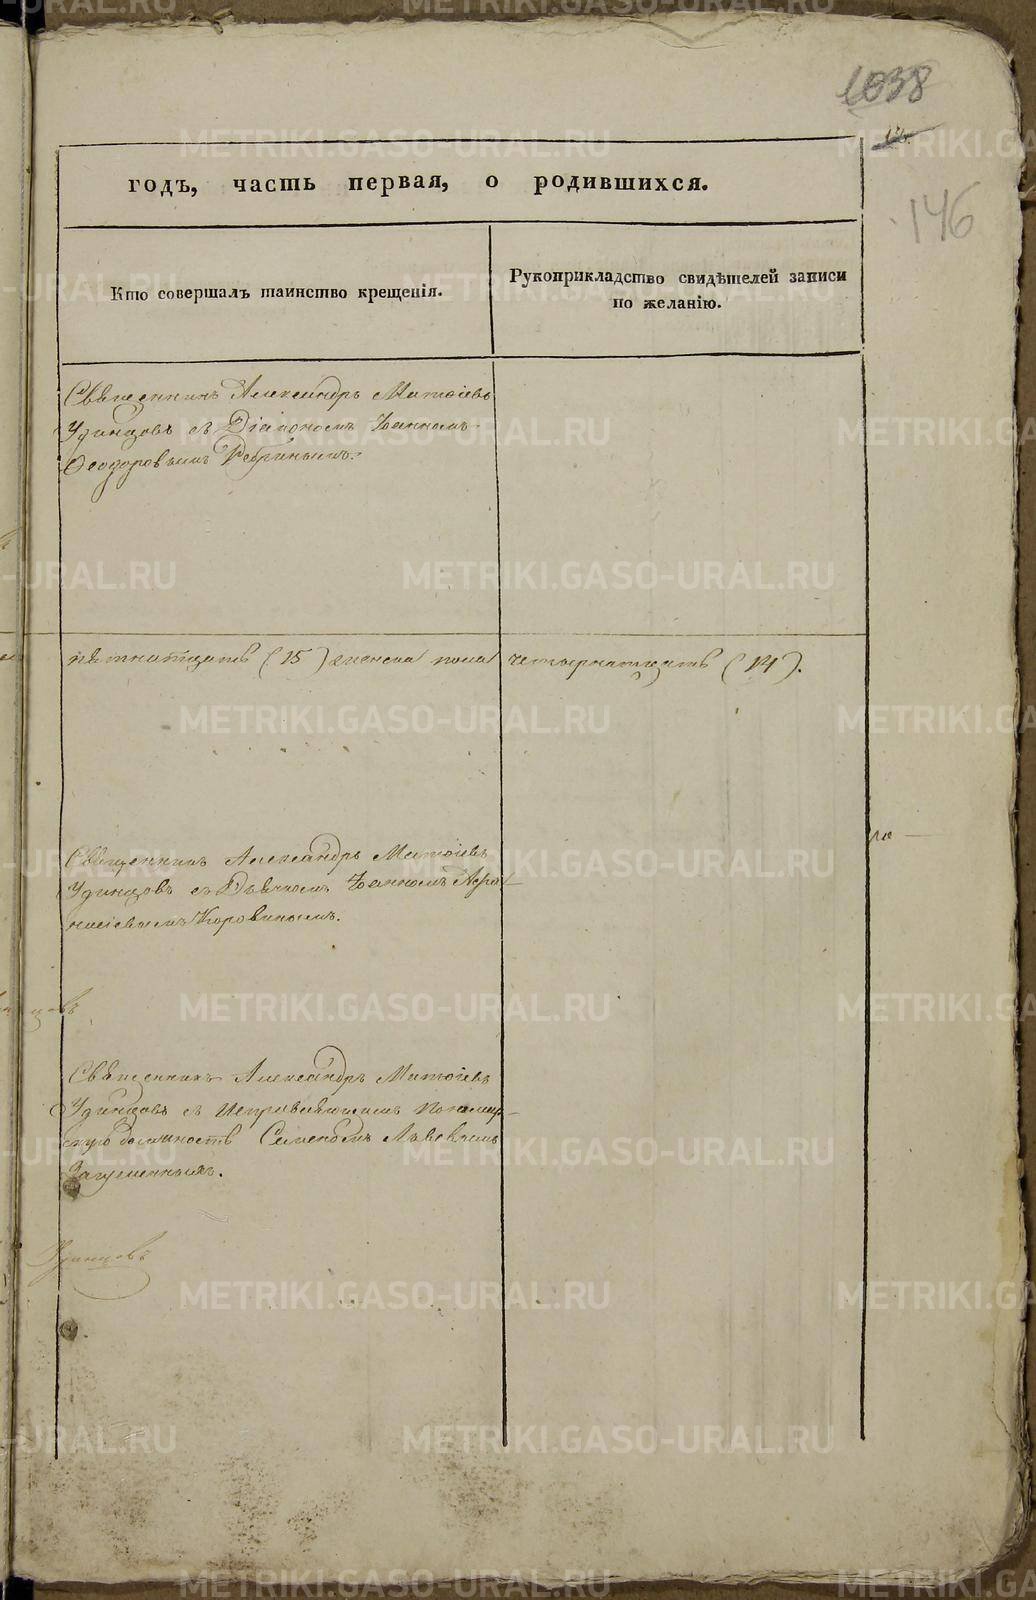 1038
146
годъ, часть первая, о родившихся.
Кто совершалъ таинство крещенія.
Рукоприкладство свидѣтелей записи
по желанію.
Священникъ Александръ Матѳіевъ
Удинцовъ съ Діакономъ Іоанномъ
Ѳеодоровымъ Ребринымъ.
пятнатцать (15) женска пола четырнатцать (14).
Священникъ Александръ Матѳіевъ
Удинцовъ съ Дьячкомъ Іоанномъ Аѳа-
насіевымъ Коровинымъ.
Священникъ Александръ Матѳіевъ
Удинцовъ съ Исправляющимъ Понамар-
скую должность Симеономъ Львовымъ
Загуменныхъ.
Удинцовъ
METRIKI.GASO-URAL.RU